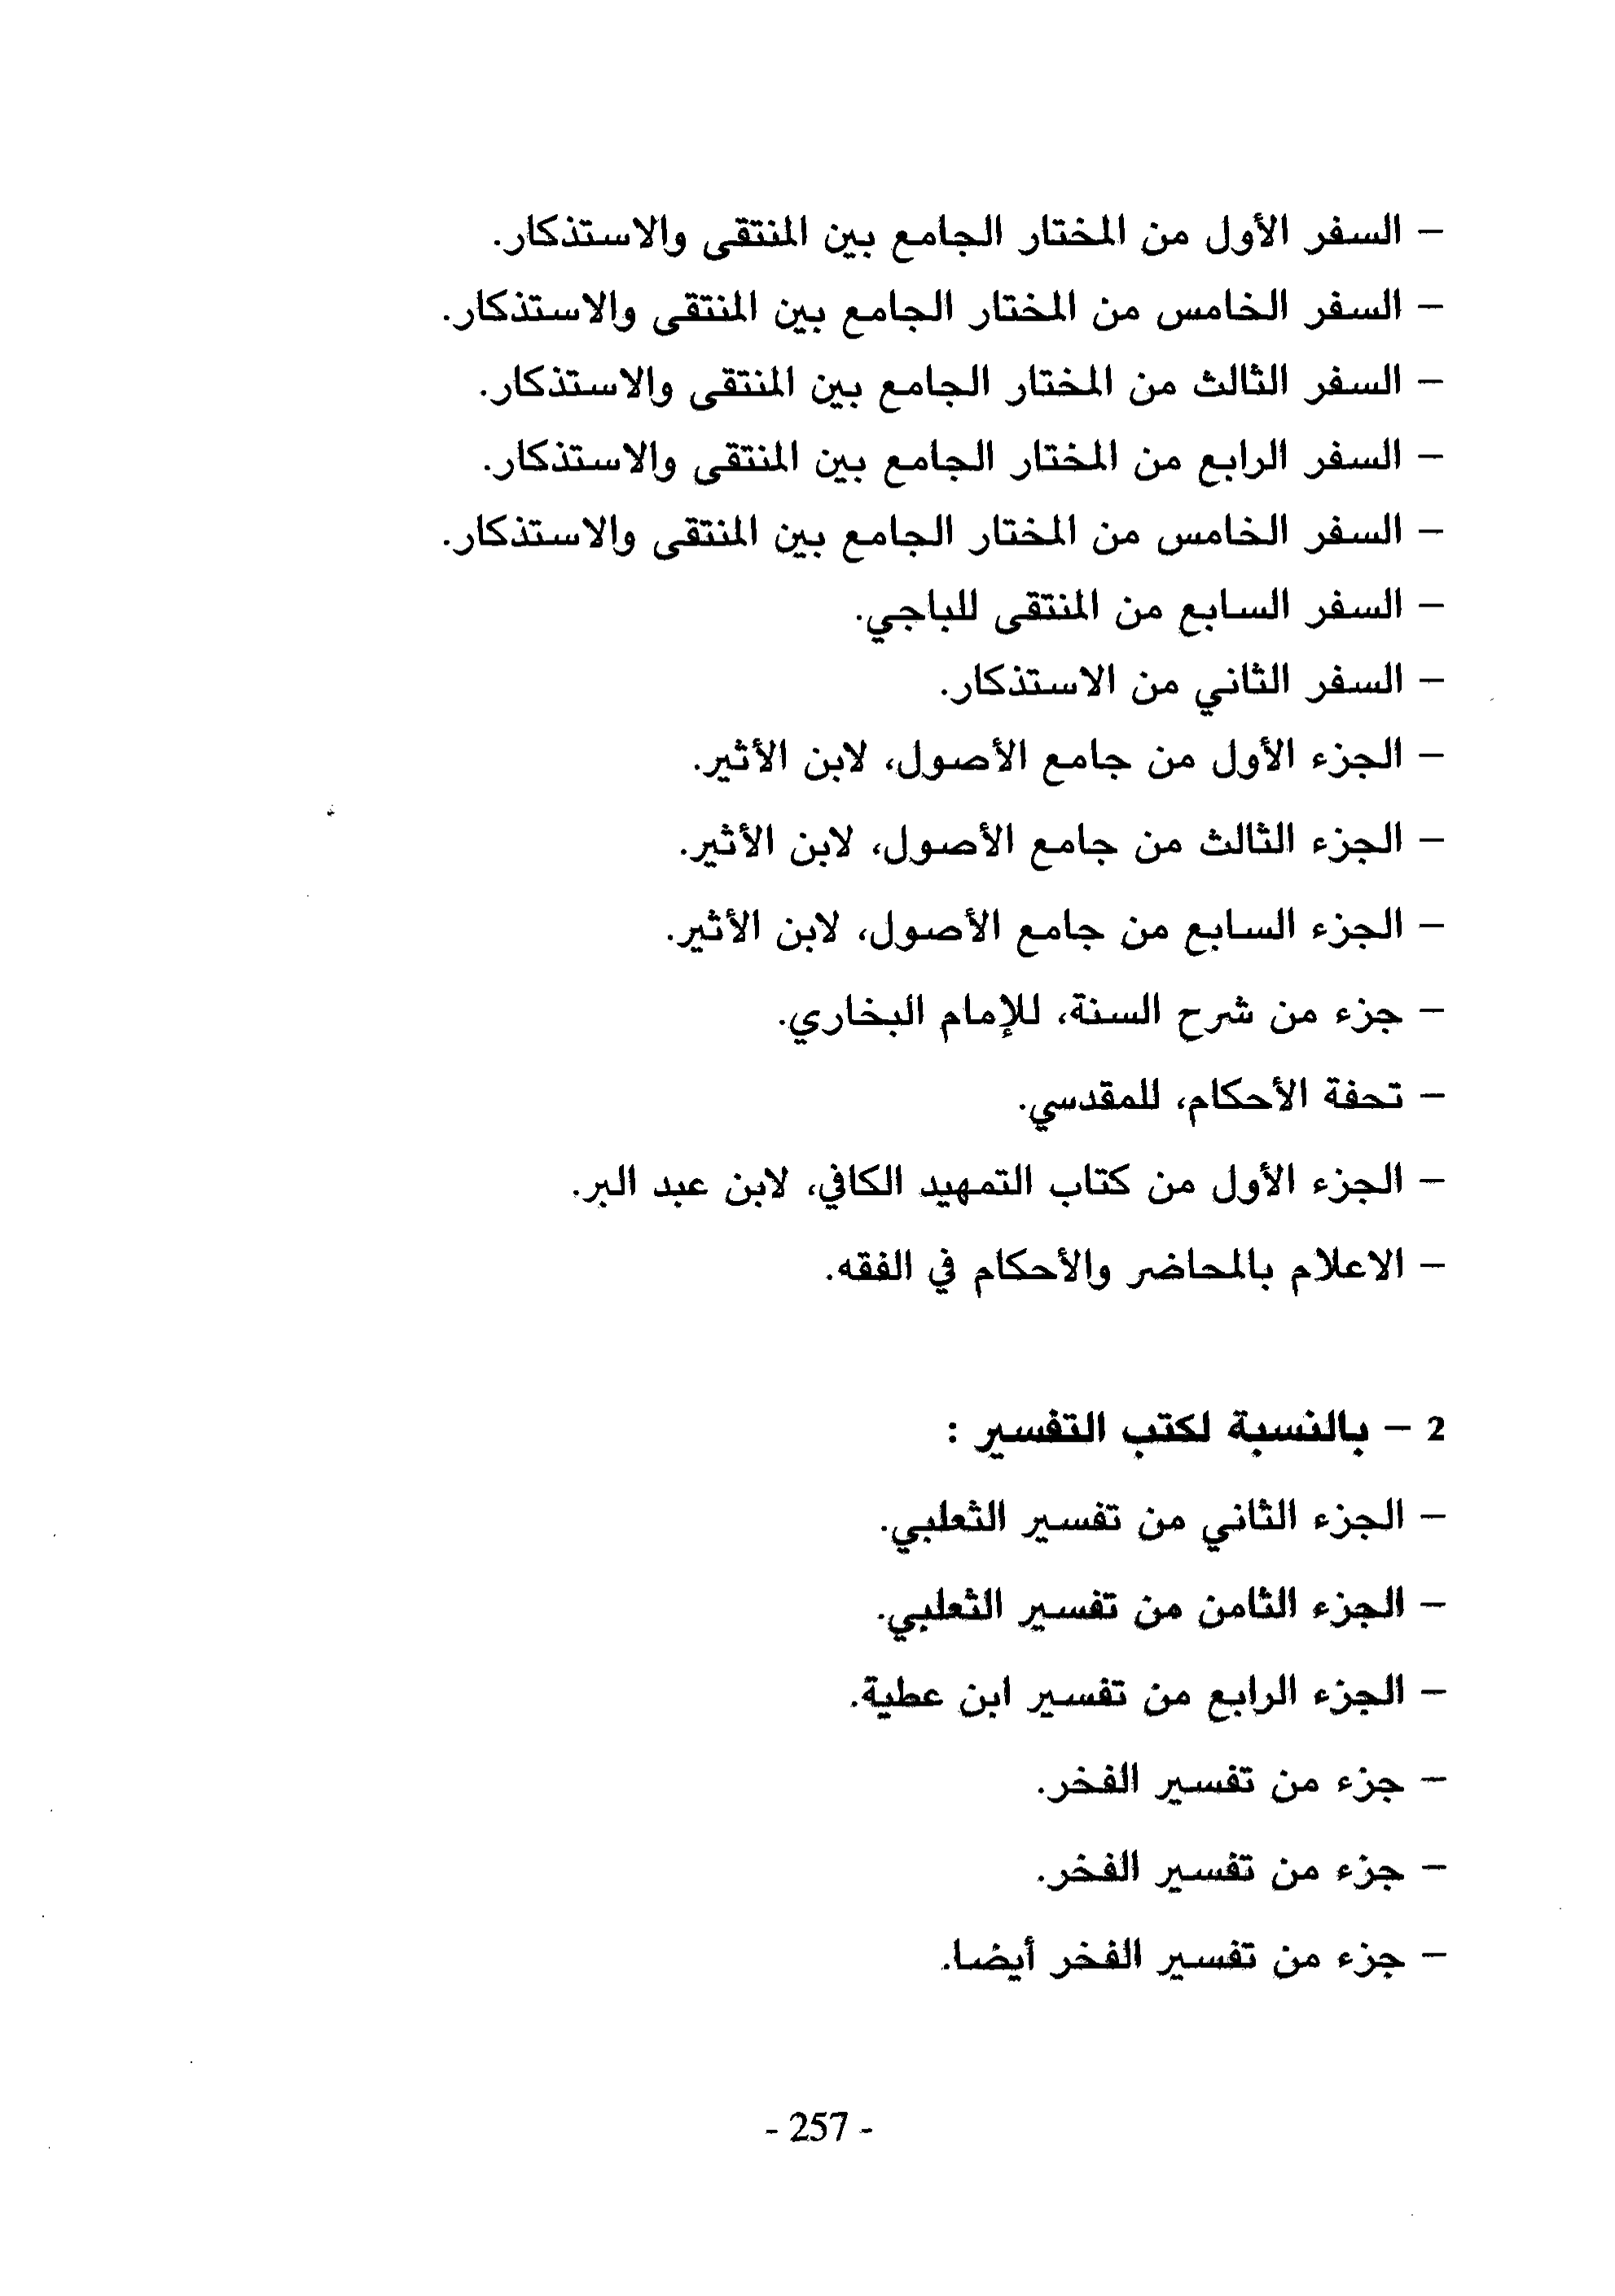 – السفر الأول من المختار الجامع بين المنتقى والاستذكار.
– السفر الخامس من المختار الجامع بين المنتقى والاستذكار.
– السفر الثالث من المختار الجامع بين المنتقى والاستذكار.
– السفر الرابع من المختار الجامع بين المنتقى والاستذكار.
– السفر الخامس من المختار الجامع بين المنتقى والاستذكار.
– السفر السابع من المنتقى للباجي.
– السفر الثاني من الاستذكار.
– الجزء الأول من جامع الأصول، لابن الأثير.
– الجزء الثالث من جامع الأصول، لابن الأثير.
– الجزء السابع من جامع الأصول، لابن الأثير.
– جزء من شرح السنة، للإمام البخاري.
– تحفة الأحكام، للمقدسي.
– الجزء الأول من كتاب التمهيد الكافي، لابن عبد البر.
– الاعلام بالمحاضر والأحكام في الفقه.
2 – بالنسبة لكتب التفسير :
– الجزء الثاني من تفسير الثعلبي.
– الجزء الثامن من تفسير الثعلبي.
– الجزء الرابع من تفسير ابن عطية.
– جزء من تفسير الفخر.
– جزء من تفسير الفخر.
– جزء من تفسير الفخر أيضا.
- 257 -